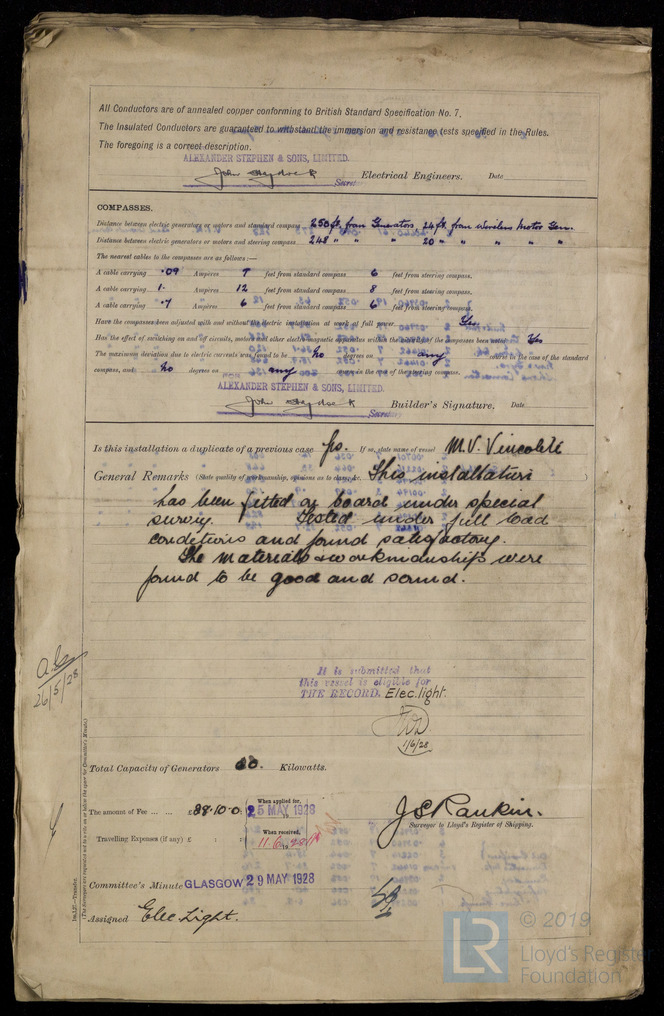 All Conductors are of annealed copper conforming to British Standard Specification No. 7.
The Insulated Conductors are guaranteed to withstand the immersion and resistance tests specified in the Rules.
The foregoing is a correct description.
ALEXANDER STEPHEN & SONS, LIMITED.
John Electrical Engineers. Date
COMPASSES.
Distance between electric generators or motors and standard compass 250 ft. from Generators 24 ft. from Wireless Motor Gen.
Distance between electric generators or motors and steering compass 248 " " " 20 " " " " "
The nearest cables to the compasses are as follows:—
A cable carrying .09 Ampères 7 feet from standard compass 6 feet from steering compass.
A cable carrying 1. Ampères 12 feet from standard compass 8 feet from steering compass.
A cable carrying .7 Ampères 6 feet from standard compass 6 feet from steering compass.
Have the compasses been adjusted with and without the electric installation at work at full power Yes
Has the effect of switching on and off circuits, motors and other electro magnetic apparatus within the of the compasses been noted Yes
The maximum deviation due to electric currents was found to be No degrees on any course in the case of the standard
compass, and No degrees on any course in the case of the steering compass.
ALEXANDER STEPHEN & SONS, LIMITED.
John Builder's Signature. Date
Is this installation a duplicate of a previous case If so, state name of vessel M.V.
General Remarks (State quality of workmanship, opinions as to class, &c. This installation
has been fitted on board under special
survey. Tested under full load
conditions and found satisfactory.
The materials & workmanship were
found to be good and sound.
26/5/28
It is submitted that
this vessel is eligible for
THE RECORD. Elec. light.
1/6/28
Total Capacity of Generators Kilowatts.
The amount of Fee ... ... £ 38.10.0 When applied for, 25 MAY 1928
J S Rankin.
Surveyor to Lloyd's Register of Shipping.
Travelling Expenses (if any) £ When received, 11.6.
Committee's Minute GLASGOW 29 MAY 1928
Assigned Elec Light.
© 2019
LR Lloyd's Register
Foundation